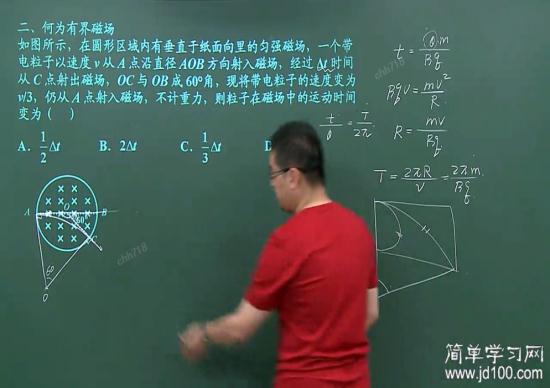 二、何为有界磁场
如图所示，在圆形区域内有垂直于纸面向里的匀强磁场，一个带
电粒子以速度v从A点沿直径AOB方向射入磁场，经过Δt时间
从C点射出磁场，OC与OB成60°角，现将带电粒子的速度变为
v/3，仍从A点射入磁场，不计重力，则粒子在磁场中的运动时间
变为（ ）
A. 1/2 Δt B. 2Δt C. 1/3 Δt D
t = θm/Bq
Bqv = mv²/R
t/θ = T/2π
R = mv/Bq
T = 2πR/v = 2πm/Bq
A O B
60
C
60
O
chh718
chh718
chh718
简单学习网
www.jd100.com